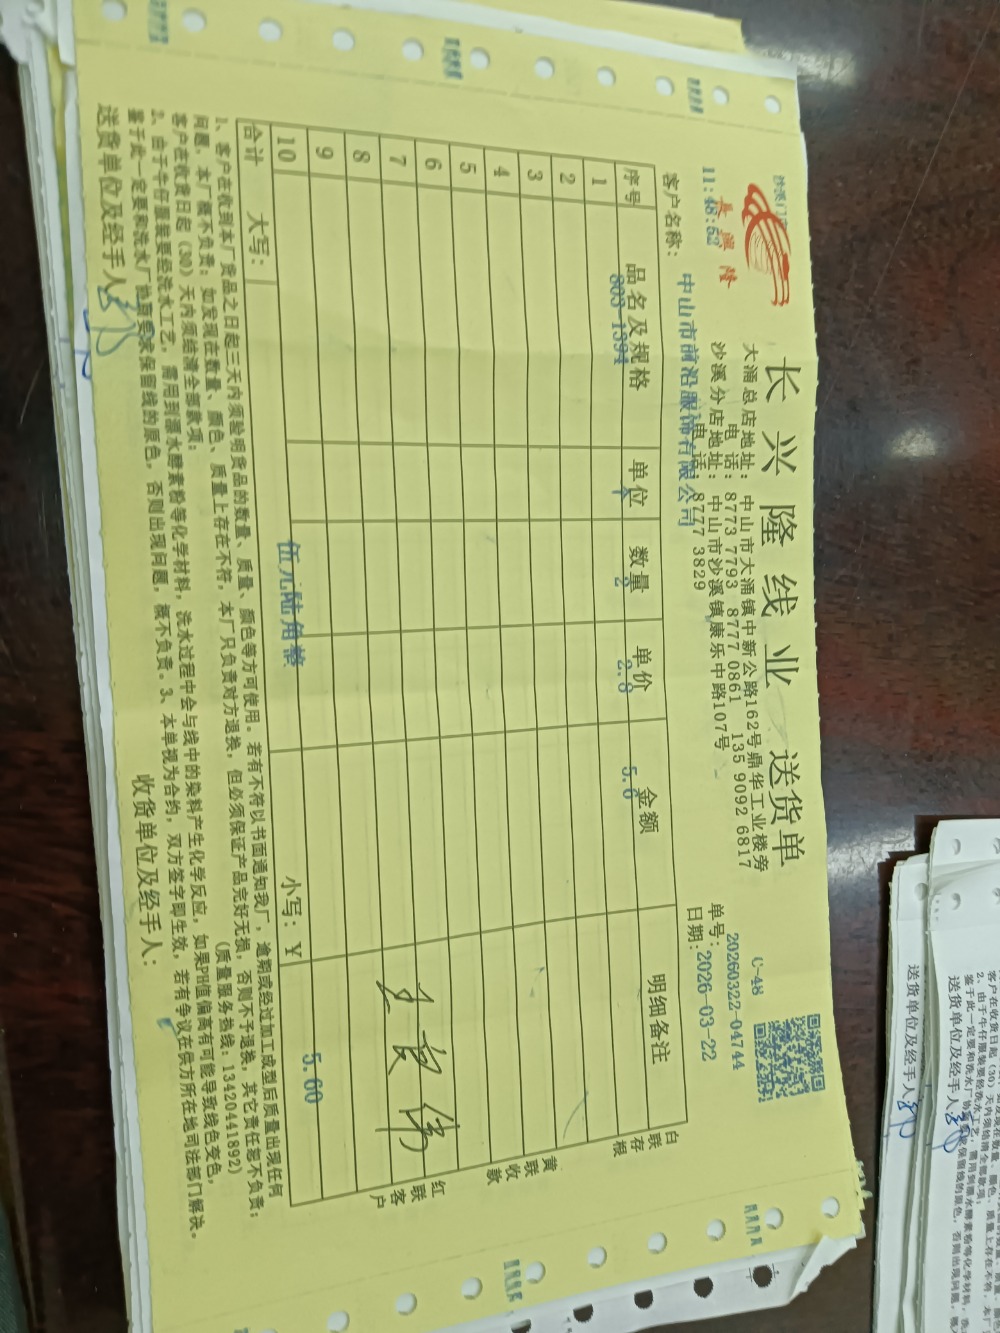 长兴隆线业 送货单
長興隆
C-48
大涌总店地址：中山市大涌镇中新公路162号鼎华工业楼旁
电 话：8773 7793 8777 0861 135 9092 6817
沙溪分店地址：中山市沙溪镇康乐中路107号
电 话：8777 3829
单号：20260322-04744
11:48:52
日期：2026-03-22
客户名称：中山市前沿服饰有限公司
序号 品名及规格 单位 数量 单价 金额 明细备注
803-1394 个 2 2.8 5.6
1
2
3
4
5
6
7
8
9
10
合计 大写： 伍元陆角整 小写：￥ 5.60
白联存根
黄联收款
红联客户
1、客户在收到本厂货品之日起三天内须验明货品的数量、质量、颜色等方可使用。若有不符以书面通知我厂，逾期或经过加工成型后质量出现任何
问题，本厂概不负责；如发现在数量、颜色、质量上存在不符，本厂只负责对方退换，但必须保证产品完好无损，否则不予退换，其它责任恕不负责；
客户在收货日起（30）天内须结清全部款项； （质量服务热线：13420441892）
2、由于牛仔服装要经洗水工艺，需用到漂水酵素粉等化学材料，洗水过程中会与线中的染料产生化学反应，如果PH值偏高有可能导致线色变色，
鉴于此一定要和洗水厂协商要求保留线的原色，否则出现问题，概不负责。3、本单视为合约，双方签字即生效，若有争议在供方所在地司法部门解决。
送货单位及经手人： 收货单位及经手人：
送货单位及经手人
送货单位及经手人